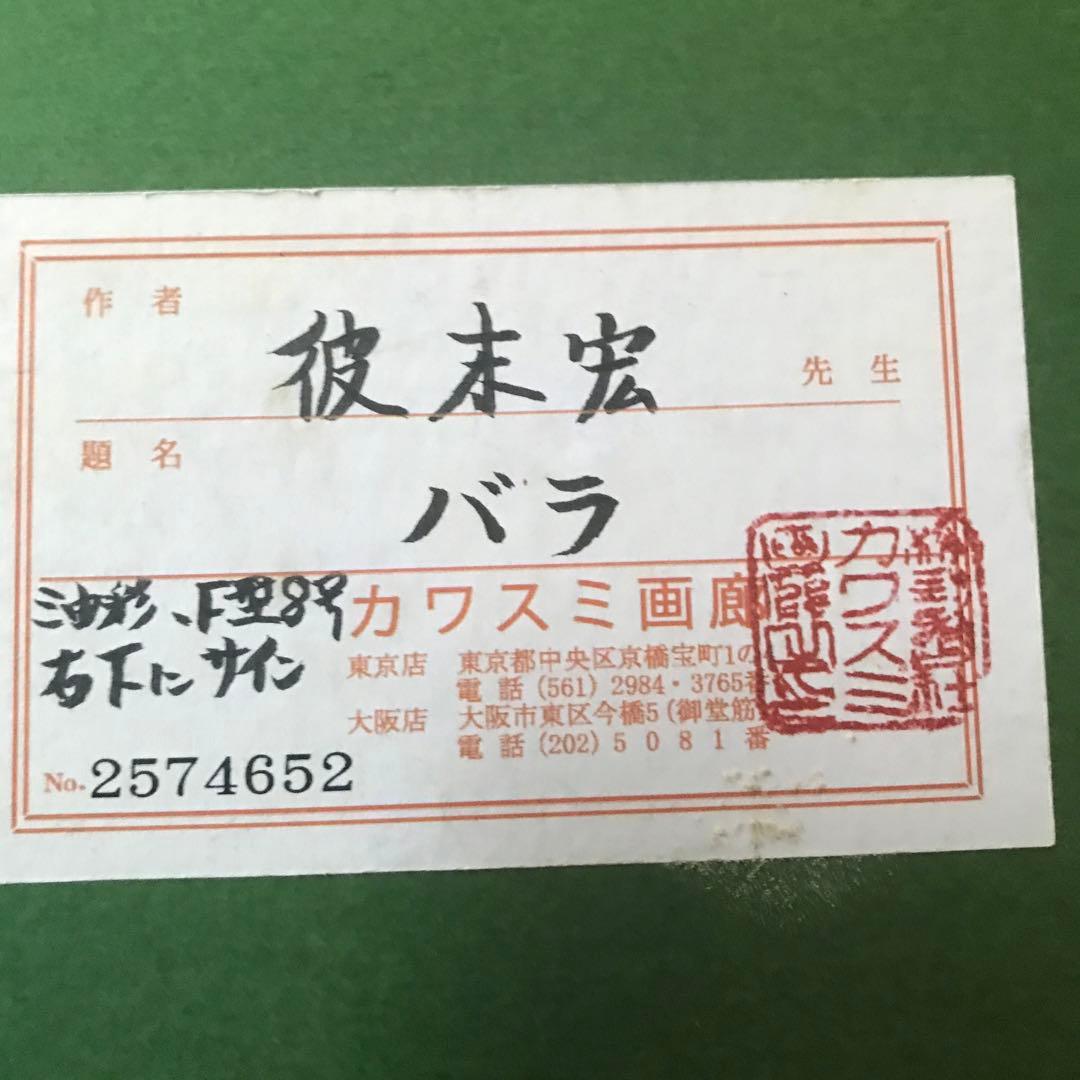 作者
彼末宏 先生
題名
バラ
油彩、F型8号
右下にサイン
カワスミ画廊
東京店 東京都中央区京橋宝町1の
電話 (561) 2984・3765番
大阪店 大阪市東区今橋5(御堂筋
電話 (202) 5081番
No. 2574652
カワスミ